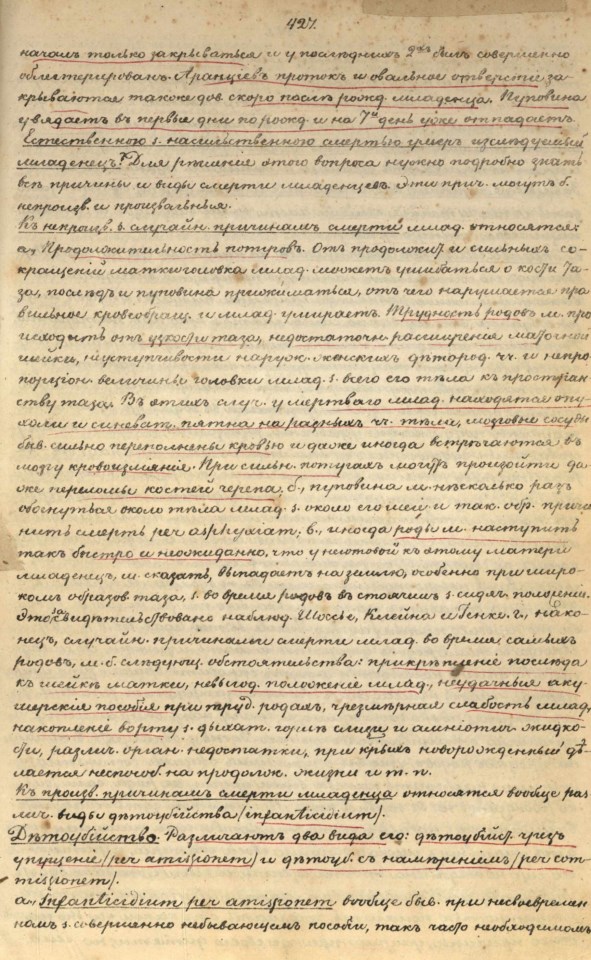 427.
началъ только закрываться и у послѣднихъ 2хъ былъ совершенно
облитерированъ. Аранціевъ протокъ и овальное отверстіе за-
крываются также дов. скоро послѣ рожд. младенца. Пуповина
увядаетъ въ первые дни по рожд. и на 7й день уже отпадаетъ.
Естественною s. насильственною смертью умеръ изслѣдуемый
младенецъ? Для рѣшенія этого вопроса нужно подробно знать
всѣ причины и виды смерти младенцевъ. Эти прич. могутъ б.
непроизв. и произвольныя.
Къ непроизв. s. случайн. причинамъ смерти млад. относятся:
а., Продолжительность потуговъ. Отъ продолжит. и сильныхъ со-
кращеній матки головка млад. можетъ ушибаться о кости та-
за, послѣдъ и пуповина прижиматься, отъ чего нарушается пра-
вильное кровообращ. и млад. умираетъ. Трудность родовъ м. про-
исходить отъ узкости таза, недостаточн. расширенія маточной
шейки, неуступчивости наружн. женскихъ дѣтород. чч. и непро-
порціон. величины головки млад. s. всего его тѣла къ простран-
ству таза. Въ этихъ случ. у мертваго млад. находятся опу-
холи и синеват. пятна на разныхъ чч. тѣла, мозговые сосуды
быв. сильно переполнены кровью и даже иногда встрѣчаются въ
мозгу кровоизліяніе. При сильн. потугахъ могутъ произойти да-
же переломы костей черепа; б., пуповина м. нѣсколько разъ
обогнуться около тѣла млад. s. около его шеи и так. обр. причи-
нить смерть per asphyxiam; в., иногда роды м. наступить
такъ быстро и неожиданно, что у неготовой къ этому матери
младенецъ, т. сказать, выпадаетъ на землю, особенно при широ-
комъ образов. таза, s. во время родовъ въ стоячемъ s. сидяч. положеніи.
Это засвидѣтельствовано наблюд. Шоссье, Клейна и Генке. г., нако-
нецъ, случайн. причинами смерти млад. во время самыхъ
родовъ, м. б. слѣдующ. обстоятельства: прикрѣпленіе послѣда
къ шейкѣ матки, невыгод. положеніе млад., неудачныя аку-
шерскія пособія при труд. родахъ, чрезмѣрная слабость млад.,
накопленіе во рту s. дыхат. горлѣ слизи и амніотич. жидко-
сти, различ. орган. недостатки, при коихъ новорожденный дѣ-
лается неспособ. на продолж. жизни и т. п.
Къ произв. причинамъ смерти младенца относятся вообще раз-
лич. виды дѣтоубійства (infanticidium).
Дѣтоубійство. Различаютъ два вида его: дѣтоубійст. чрезъ
упущеніе (per omissionem) и дѣтоуб. съ намѣреніемъ (per com-
missionem).
а., Infanticidium per omissionem вообще быв. при несвоевремен-
номъ s. совершенно небывающемъ пособіи, такъ часто необходимомъ